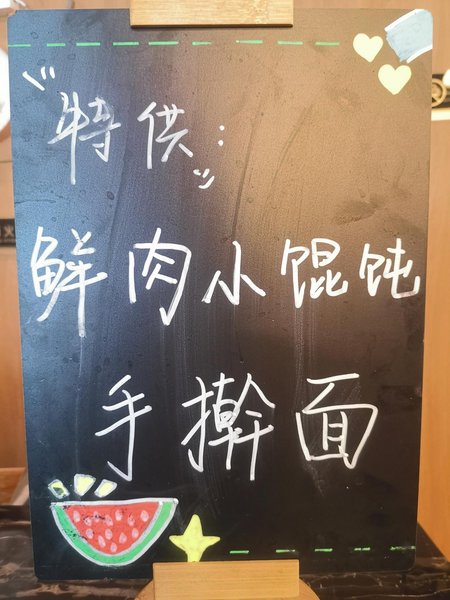 特供：
鲜肉小馄饨
手擀面